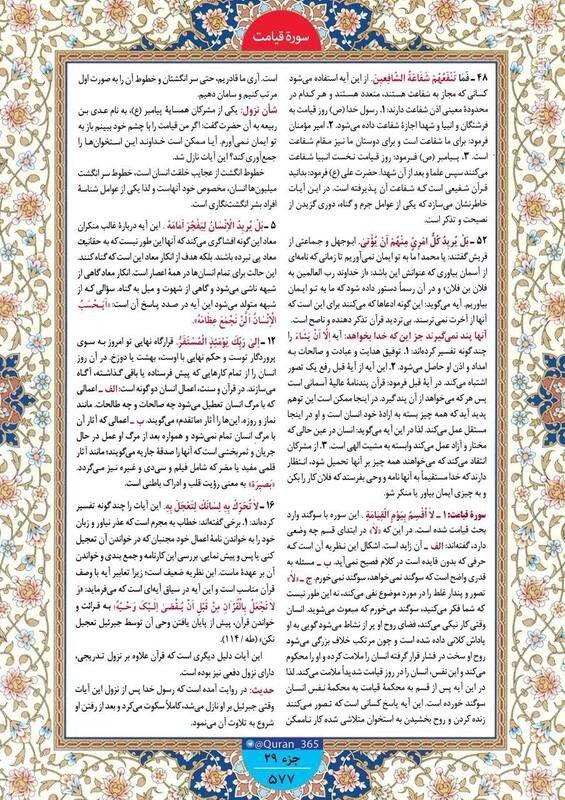 سورة قیامت
۴۸ ـ فَمَا تَنْفَعُهُمْ شَفَاعَةُ الشَّافِعِينَ. از این آیه استفاده می‌شود
کسانی که مجاز به شفاعت هستند، متعدد هستند و هر کدام در
محدودهٔ معینی اذن شفاعت دارند: ۱. رسول خدا (ص) روز قیامت به
فرشتگان و انبیا و شهدا اجازهٔ شفاعت داده می‌شود. ۲. امیر مؤمنان
فرمود: برای ما شفاعت است و برای دوستان ما نیز مقام شفاعت
است. ۳. پیامبر (ص) فرمود: روز قیامت نخست انبیا شفاعت
می‌کنند سپس علما و بعد از آن شهدا. حضرت علی (ع) فرمود: بدانید
قرآن شفیعی است که شفاعت آن پذیرفته است. در این آیات
خاطرنشان می‌سازد که یکی از عوامل جرم و گناه، دوری گزیدن از
نصیحت و تذکر است.
۵۲ ـ بَلْ يُرِيدُ كُلُّ امْرِئٍ مِنْهُمْ أَنْ يُؤْتَىٰ. ابوجهل و جماعتی از
قریش گفتند: یا محمد! ما به تو ایمان نمی‌آوریم تا زمانی که نامه‌ای
از آسمان بیاوری که عنوانش این باشد: «از خداوند رب العالمین به
فلان بن فلان» و در آن رسماً دستور داده شود که ما به تو ایمان
بیاوریم. آیه می‌گوید: این گونه ادعاها که می‌کنند برای این است که
آنها از آخرت نمی‌ترسند. بی‌تردید قرآن تذکر دهنده و ناصح است.
آنها پند نمی‌گیرند جز این که خدا بخواهد: آیه إِلَّا أَنْ يَشَاءَ را
چند گونه تفسیر کرده‌اند: ۱. توفیق هدایت و عبادت و صالحات به
امداد و اذن او حاصل می‌شود. ۲. این آیه از آیهٔ قبل رفع یک تصور
اشتباه می‌کند. در آیهٔ قبل فرمود: قرآن پندنامهٔ عالیهٔ آسمانی است
پس هر که می‌خواهد از آن پند گیرد. در اینجا ممکن است این توهم
پدید آید که همه چیز بسته به ارادهٔ خود انسان است و او در اینجا
مستقل عمل می‌کند. لذا در این آیه می‌گوید: انسان در عین حالی که
مختار و آزاد عمل می‌کند وابسته به مشیت الهی است. ۳. از مشرکان
انتقاد می‌کند که می‌خواهند همه چیز بر آنها تحمیل شود، انتظار
دارند که خدا مستقیماً به آنها نامه و وحی بفرستد که فلان کار را بکن
و به چیزی ایمان بیاور یا منکر شو.
سورهٔ قیامت: ۱ ـ لَا أُقْسِمُ بِيَوْمِ الْقِيَامَةِ. این سوره با سوگند وارد
بحث قیامت شده است. در این که «لَا» در ابتدای قسم چه وضعی
دارد، گفته‌اند: الف ـ آن زاید است. اشکال این نظریه آن است که
حرفی که بدون فایده است در کلام فصیح نمی‌آید. ب ـ مسئله به
قدری واضح است که سوگند نمی‌خواهد، سوگند نمی‌خورم. ج ـ «لَا»
تصور و پندار غلط را در مورد موضوع نفی می‌کند، نه این طور نیست
که شما فکر می‌کنید، سوگند می‌خورم که مبعوث می‌شوید. انسان
وقتی کار نیکی می‌کند، فضای روح او پر از نشاط می‌شود گویی به او
پاداش کلانی داده شده است و چون مرتکب خلاف بزرگی می‌شود
روح او سخت در فشار قرار گرفته انسان را ملامت کرده و او را محکوم
می‌کند و این نفس، انسان را در روز قیامت شدیداً ملامت می‌کند. لذا
در این آیه پس از قسم به محکمهٔ قیامت به محکمهٔ نفس انسان
سوگند خورده است. این آیه پاسخ کسانی است که تصور می‌کنند
زنده کردن و روح بخشیدن به استخوان متلاشی شده کار ناممکن
است. آری ما قادریم، حتی سر انگشتان و خطوط آن را به صورت اول
مرتب کنیم و سامان دهیم.
شأن نزول: یکی از مشرکان همسایهٔ پیامبر (ع)، به نام عدی بن
ربیعه به آن حضرت گفت: اگر من قیامت را با چشم خود ببینم باز به
تو ایمان نمی‌آورم. آیا ممکن است خداوند این استخوان‌ها را
جمع‌آوری کند؟ این آیات نازل شد.
خطوط انگشت از عجایب خلقت انسان است، خطوط سر انگشت
میلیون‌ها انسان، مخصوص خود آنهاست و لذا یکی از عوامل شناسهٔ
افراد بشر انگشت‌نگاری است.
۵ ـ بَلْ يُرِيدُ الْإِنْسَانُ لِيَفْجُرَ أَمَامَهُ. این آیه دربارهٔ غالب منکران
معاد این گونه افشاگری می‌کند که آنها این طور نیست که به حقانیت
معاد پی نبرده باشند. بلکه هدف از انکار معاد این است که گناه کنند.
این حالت برای تمام انسان‌ها در همهٔ اعصار است. انکار معاد گاهی از
شبهه ناشی می‌شود و گاهی از شهوت و میل به گناه. سؤالی که از
شبهه متولد می‌شود این آیه در صدد پاسخ آن است: «أَيَحْسَبُ
الْإِنْسَانُ أَلَّنْ نَجْمَعَ عِظَامَهُ».
۱۲ ـ إِلَىٰ رَبِّكَ يَوْمَئِذٍ الْمُسْتَقَرُّ. قرارگاه نهایی تو امروز به سوی
پروردگار توست و حکم نهایی با اوست، بهشت یا دوزخ. در آن روز
انسان را از تمام کارهایی که پیش فرستاده یا باقی گذاشته، آگاه
می‌سازند. در قرآن و سنت، اعمال انسان دو گونه است: الف ـ اعمالی
که با مرگ انسان تعطیل می‌شود چه صالحات و چه طالحات. مانند
نماز و روزه. این‌ها را آثار «ماتقدم» می‌گویند. ب ـ اعمالی که آثار آن
با مرگ انسان تمام نمی‌شود و همواره بعد از مرگ او عمل در حال
جریان و ثمربخشی است که آنها را صدقهٔ جاریه می‌گویند؛ مانند آثار
قلمی مفید یا مضر که شامل فیلم و سی‌دی و غیره نیز می‌گردد.
«بَصِيرَة» به معنی رؤیت قلب و ادراک باطنی است.
۱۶ ـ لَا تُحَرِّكْ بِهِ لِسَانَكَ لِتَعْجَلَ بِهِ. این آیات را چند گونه تفسیر
کرده‌اند: ۱. برخی گفته‌اند: خطاب به مجرم است که عذر نیاور و زبان
خود را به خواندن نامهٔ اعمال خود مجنبان که در خواندن آن تعجیل
کنی یا پس و پیش نمایی. بررسی این کارنامه و جمع بندی و خواندن
آن بر عهدهٔ ماست. این نظریه ضعیف است؛ زیرا تعابیر آیه با وصف
قرآن مناسب است و این آیه در سیاق آیه‌ای است که می‌فرماید: «وَ
لَا تَعْجَلْ بِالْقُرْآنِ مِنْ قَبْلِ أَنْ يُقْضَىٰ إِلَيْكَ وَحْيُهُ» به قرائت و
خواندن قرآن، پیش از پایان یافتن وحی آن توسط جبرئیل تعجیل
نکن؛ (طه / ۱۱۴)
این آیات دلیل دیگری است که قرآن علاوه بر نزول تدریجی،
دارای نزول دفعی نیز بوده است.
حدیث: در روایت آمده است که رسول خدا پس از نزول این آیات
وقتی جبرئیل بر او نازل می‌شد، کاملاً سکوت می‌کرد و بعد از رفتن او
شروع به تلاوت آن می‌نمود.
@Quran_365
جزء ۲۹
۵۷۷